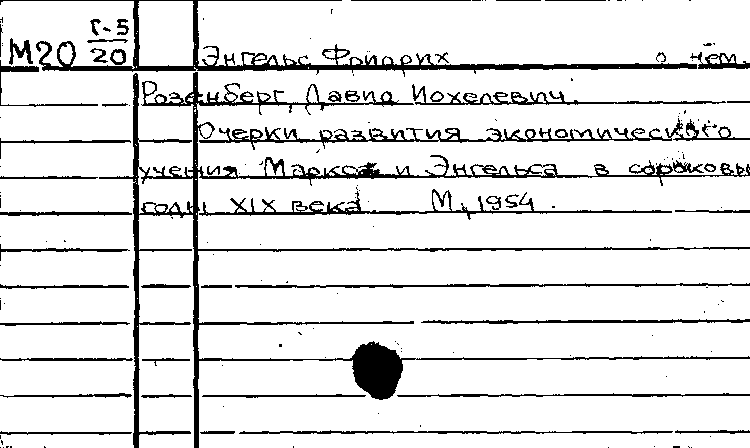 М20 Г-5/20 Энгельс, Фридрих о нём.
Розенберг, Давид Иохелевич.
Очерки развития экономического
учения Маркса и Энгельса в сороковы
годы XIX века. М., 1954.